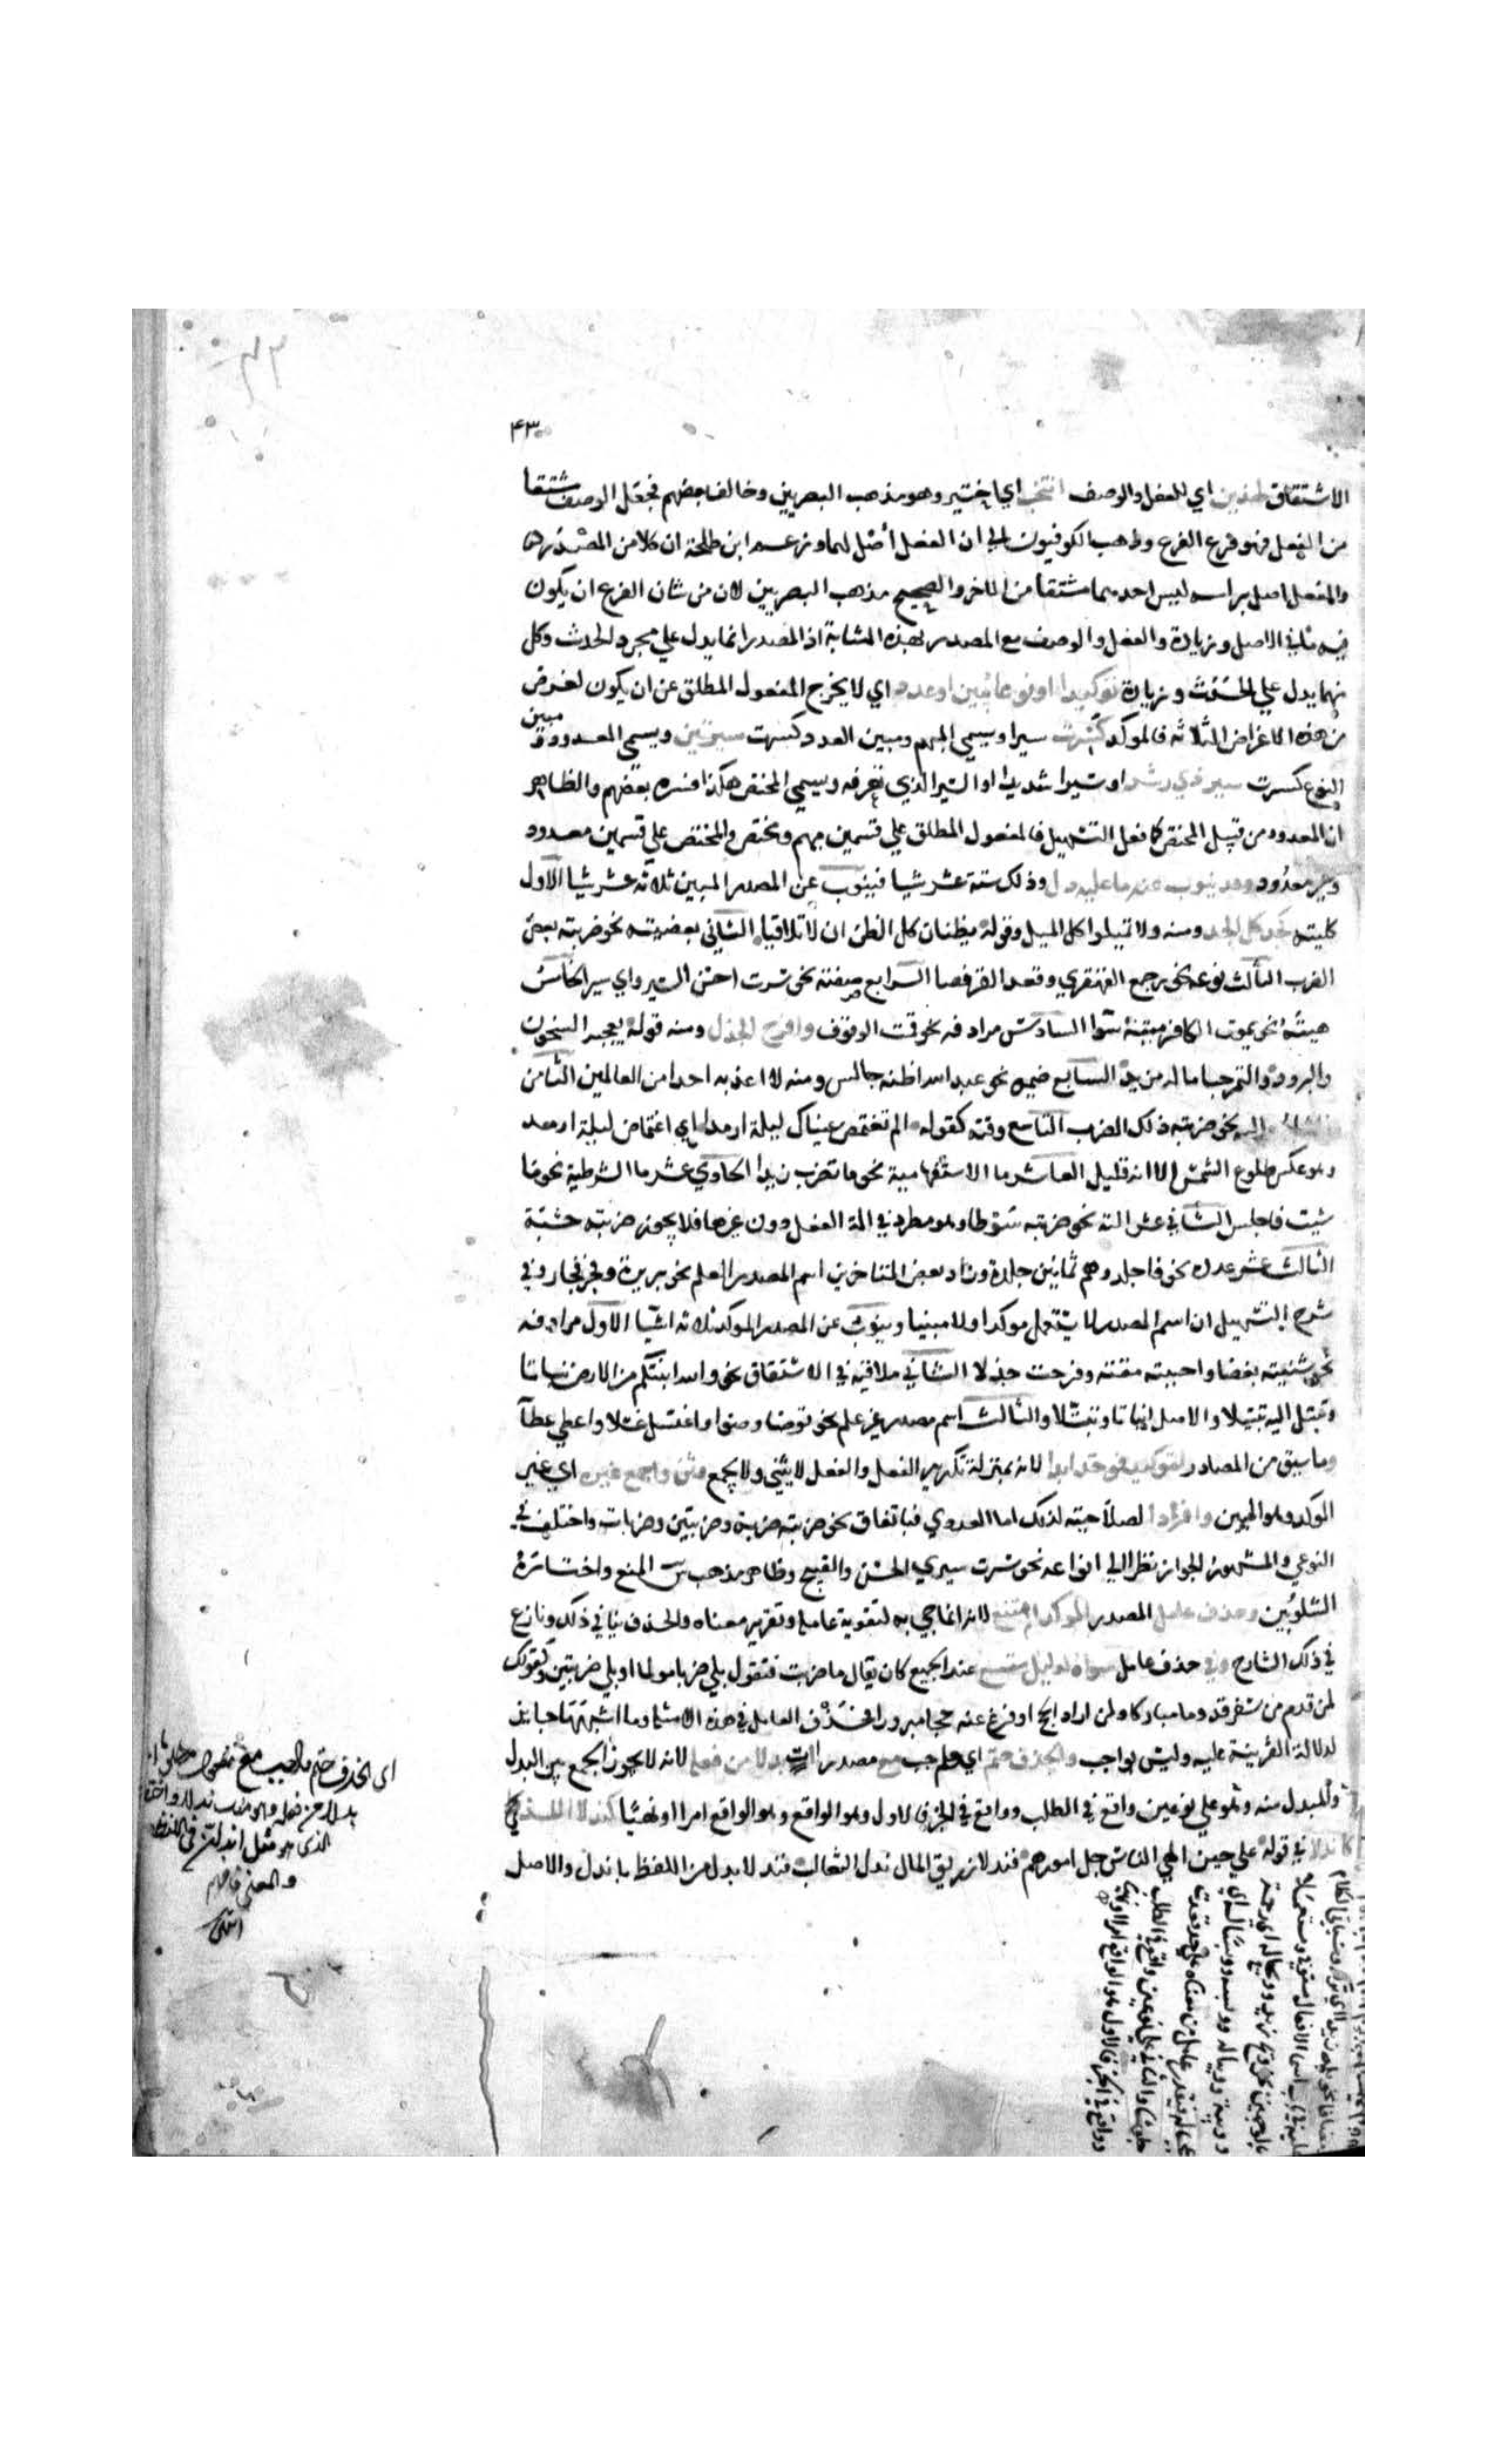 ٤٣
الاشتقاق لهذين اي للفعل والوصف انتخب اي اختير وهو مذهب البصريين وخالف بعضهم فجعل الوصف مشتقا
من الفعل فهو فرع الفرع وذهب الكوفيون الي ان الفعل أصل لهما وزعم ابن طلحة ان كلا من المصدر
والفعل اصل براسه ليس احدهما مشتقا من الاخر والصحيح مذهب البصريين لان من شان الفرع ان يكون
فيه ما في الاصل وزيادة والفعل والوصف مع المصدر بهذه المثابة اذ المصدر انما يدل علي مجرد الحدث وكل
منهما يدل علي الحدث وزيادة توكيدا او نوعا يبين او عدد اي لا يخرج المفعول المطلق عن ان يكون لغرض
من هذه الاغراض الثلاثة فالموكد كسرت سيرا ويسمي المبهم ومبين العدد كسرت سيرتين ويسمي المعدود ومبين
النوع كسرت سير ذي رشد او سيرا شديدا او السير الذي تعرفه ويسمي المختص هكذا فسره بعضهم والظاهر
ان المعدود من قبيل المختص كما فعل التسهيل فالمفعول المطلق علي قسمين مبهم ومختص والمختص علي قسمين معدود
وغير معدود وقد ينوب عنه ما عليه دل وذلك ستة عشر شيا فينوب عن المصدر المبين ثلاثة عشر شيا الاول
كليته نحو كل الجد ومنه ولا تميلوا كل الميل وقوله يظنان كل الظن ان لا تلاقيا الثاني بعضيته نحو ضربته بعض
الضرب الثالث نوعه نحو رجع القهقري وقعد القرفصا الرابع صفته نحو سرت احسن السير واي سير الخامس
هيئته نحو يموت الكافر ميتة سوا السادس مرادفه نحو قمت الوقوف وافرح الجذل ومنه قوله يعجبه السخون
والبرود والتمر حبا ماله مزيد السابع ضميره نحو عبد الله اظنه جالس ومنه لا اعذبه احدا من العالمين الثامن
المشار اليه نحو ضربته ذلك الضرب التاسع وقته كقوله الم تغتمض عيناك ليلة ارمدا اي اغتماض ليلة ارمد
وهو عكس طلوع الشمس الا انه قليل العاشر ما الاستفهامية نحو ما تضرب زيدا الحادي عشر ما الشرطية نحو ما
شيت فاجلس الثاني عشر الته نحو ضربته سوطا وهو مطرد في الة الفعل دون غيرها فلا يجوز ضربته خشبة
الثالث عشر عدده نحو فاجلدوهم ثمانين جلدة وزاد بعض المتاخرين اسم المصدر العلم نحو بر برة وفجر فجار وفي
شرح التسهيل ان اسم المصدر لا يستعمل موكدا ولا مبينا وينوب عن المصدر الموكد ثلاثة اشيا الاول مرادفه
نحو شنيته بغضا واحببته مقة وفرحت جذلا الثاني ملاقيه في الاشتقاق نحو والله انبتكم من الارض نباتا
وتبتل اليه تبتيلا والاصل انباتا وتبتلا والثالث اسم مصدر غير علم نحو توضا وضوا واغتسل غسلا واعطي عطآ
وما سبق من المصادر لتوكيد فوحد ابدا لانه بمنزلة تكرير الفعل والفعل لا يثني ولا يجمع وثن واجمع غيره اي غير
الموكد وهو المبين وافردا لصلاحيته لذلك اما العددي فباتفاق نحو ضربته ضربة وضربتين وضربات واختلف في
النوعي والمشهور الجواز نظرا الي انواعه نحو سرت سيري الحسن والقبيح وظاهر مذهب س المنع واختاره
الشلوبين وحذف عامل المصدر الموكد امتنع لانه انما جي به لتقوية عامله وتقرير معناه والحذف ينافي ذلك ونازع
في ذلك الشارح وفي حذف عامل سواه لدليل متسع عند الجميع كان يقال ما ضربت فتقول بلي ضربا مولما او بلي ضربتين وكقولك
لمن قدم من سفر قدوما مباركا ولمن اراد الحج او فرغ عنه حجا مبرورا فحذف العامل في هذه الامثلة وما اشبهها جايز
لدلالة القرينة عليه وليس بواجب والحذف حتم اي واجب مع مصدر ات بدلا من فعله لانه لا يجوز الجمع بين البدل
والمبدل منه وهو علي نوعين واقع في الطلب وواقع في الخبر فالاول وهو الواقع امرا او نهيا كندلا اللذ
كاندلا في قوله علي حين الهي الناس جل امورهم فندلا زريق المال ندل الثعالب فندلا بدل من اللفظ باندل والاصل
اي الحذف حتم واجب مع
بدلا من فعله
الذي هو مثل اندل في اللفظ
والمعني فافهم
انتهي